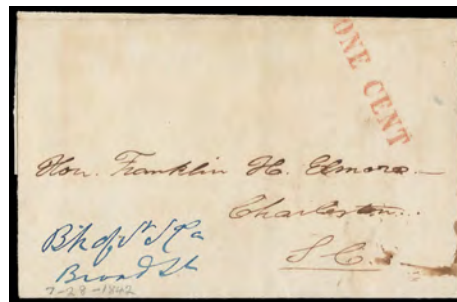 ONE CENT
Hon. Franklin H. Elmore
Charleston
S.C.
Bk of St S Ca
Broad St
7-28-1842